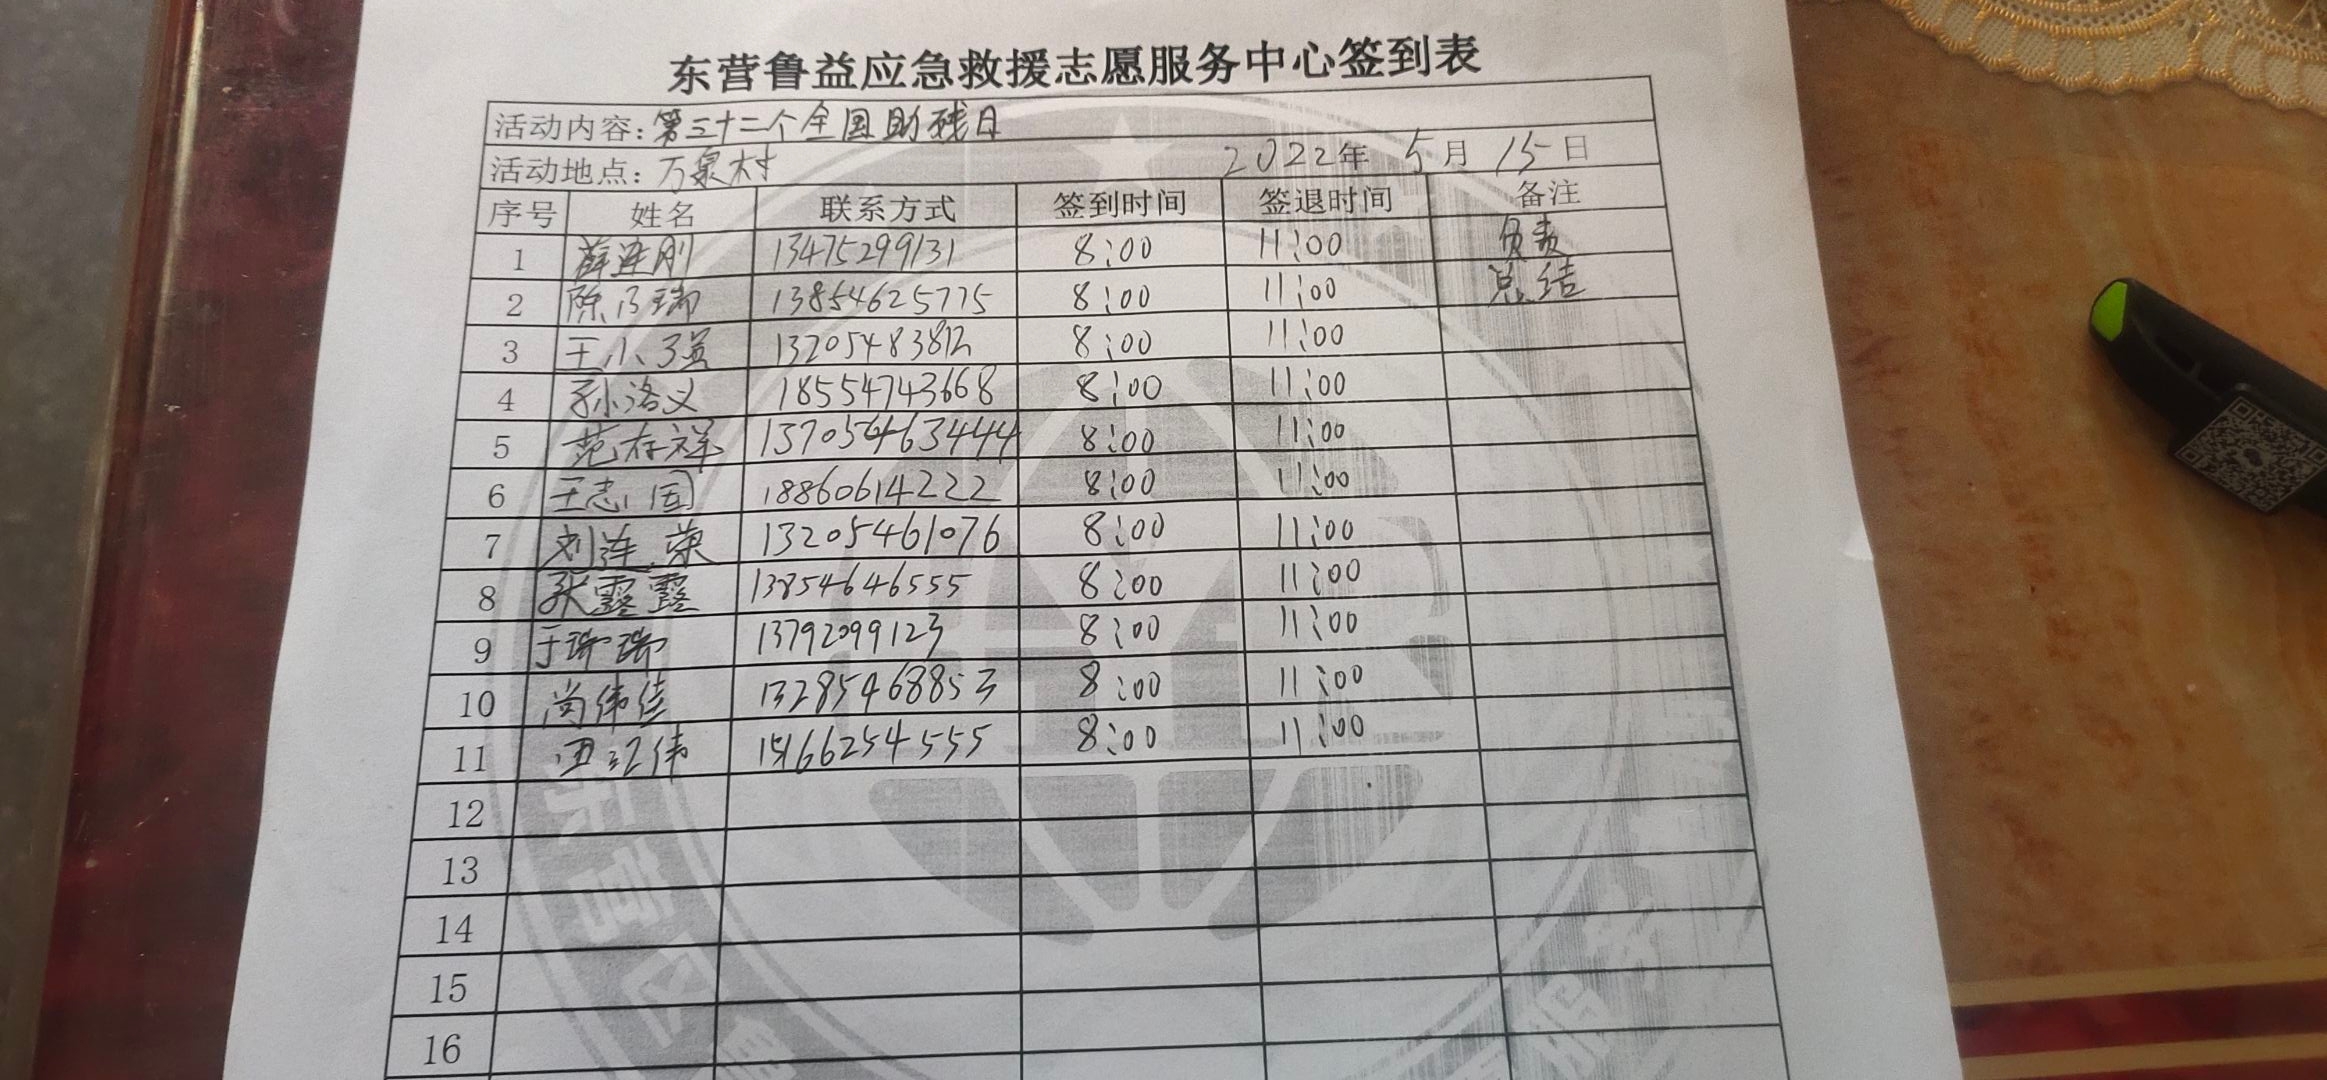 东营鲁益应急救援志愿服务中心签到表
活动内容: 第三十二个全国助残日
活动地点: 万泉村 2022年 5月 15日
序号 姓名 联系方式 签到时间 签退时间 备注
1 薛连刚 13475299131 8:00 11:00 负责
2 陈乃瑞 13854625775 8:00 11:00 总结
3 王小强 13205483812 8:00 11:00
4 孙洛义 18554743668 8:00 11:00
5 范存祥 8:00 11:00
6 王志国 18860614222 8:00 11:00
7 刘连荣 13205461076 8:00 11:00
8 张露露 13854646555 8:00 11:00
9 于瑞瑞 13792099123 8:00 11:00
10 尚伟佳 13285468853 8:00 11:00
11 8:00 11:00
12
13
14
15
16